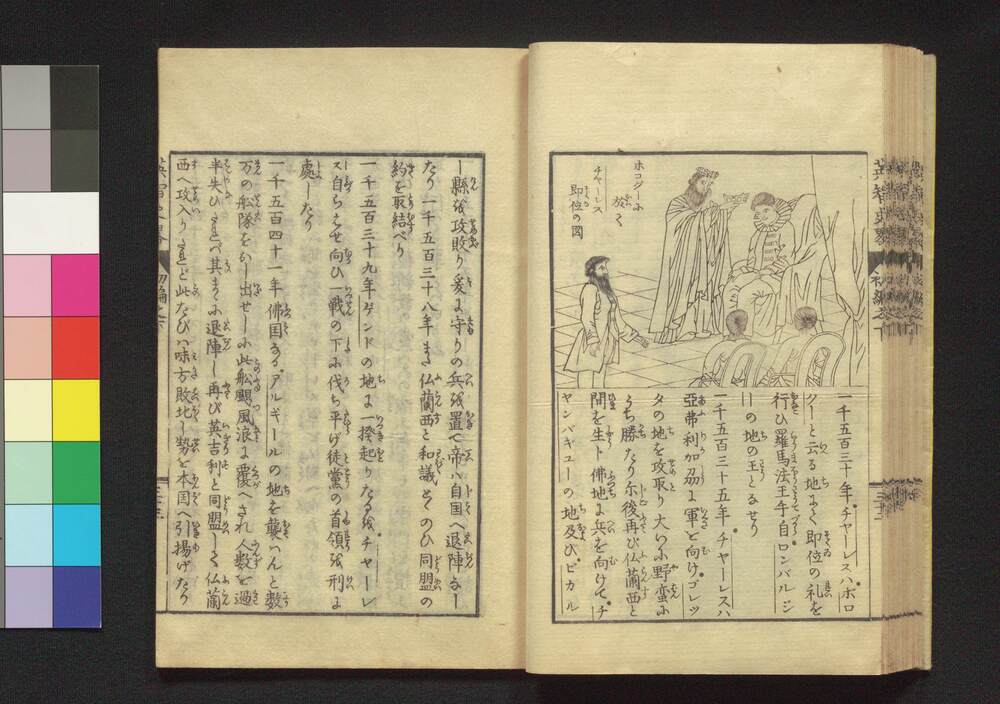 ホログーに
於て
チャーレス
即位の図
一千五百三十年チャーレスハボロ
グーと云る地にて即位の礼を
行ひ羅馬法王手自ロンバルジ
ーの地の王となせり
一千五百三十五年チャーレスハ
亜弗利加刕に軍を向けゴレッ
タの地を攻取り大いに野蛮に
うち勝たり尓後再び仏蘭西と
開を生ト佛地に兵を向けてチ
ヤンパギューの地及びピカル
ー縣を攻敗り爰に守りの兵を置て帝ハ自国へ退陣なし
たり一千五百三十八年また仏蘭西と和議とゝのひ同盟の
約を取結べり
一千五百三十九年ゲンドの地に一揆起りたるを チャーレ
ス自らはせ向ひ一戦の下に伐ち平げ徒党の首領を刑に
處したり
一千五百四十一年佛国なるアルギールの地を襲ハんと数
万の船隊をおし出せしに此舩颶風浪に覆へされ人数を過
半失ひたれバ其まゝに退陣し再び英吉利と同盟して仏蘭
西へ攻入りたれど此たびハ味方敗北し勢を本国へ引揚げたり